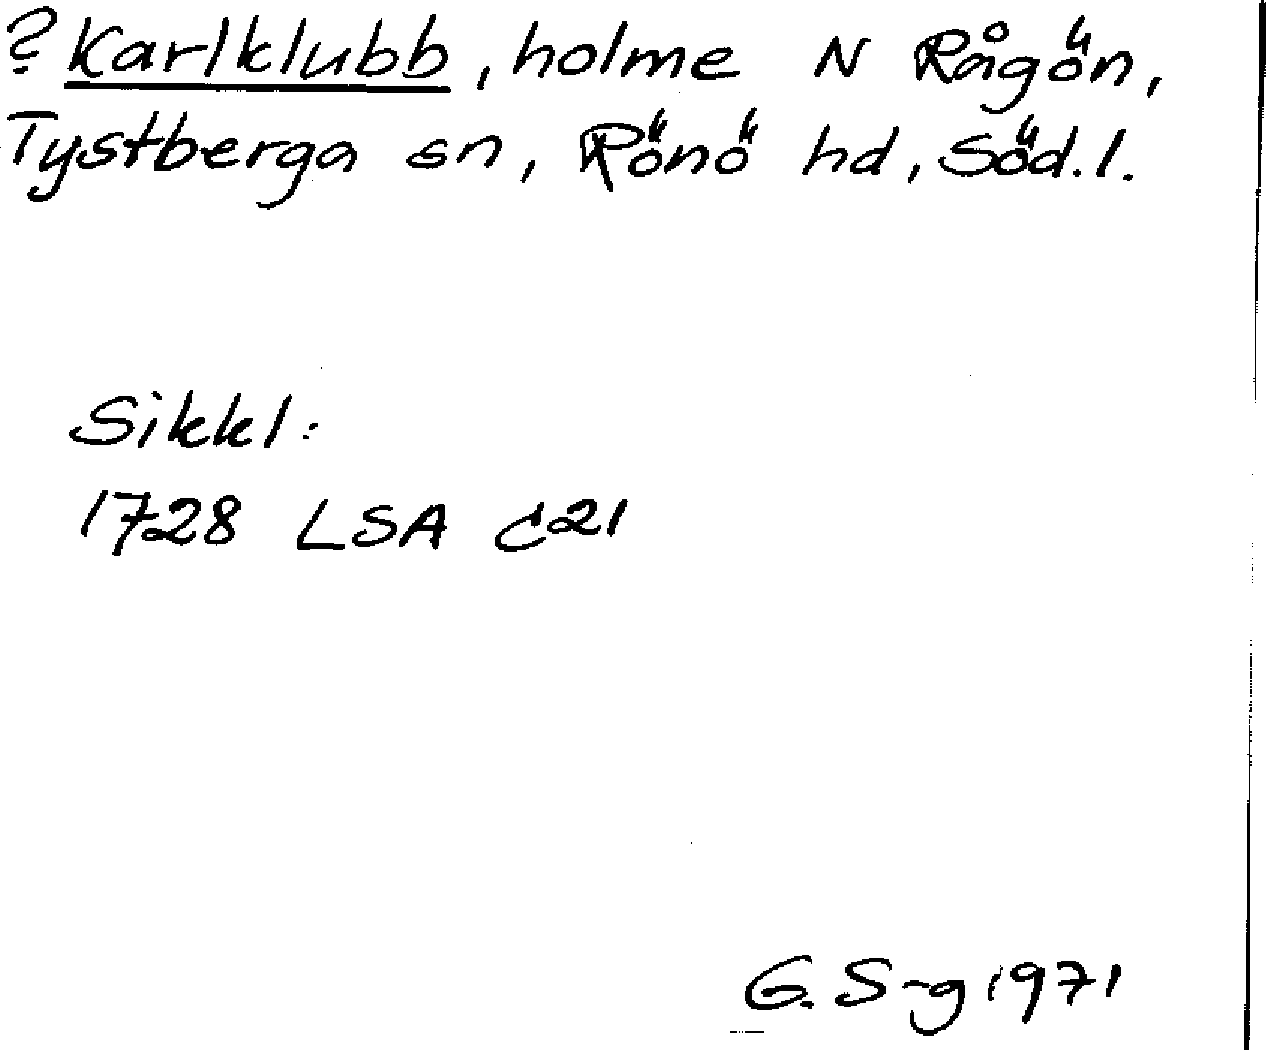 ? Karlklubb, holme N Rågön,
Tystberga sn, Rönö hd, Söd. l.
Sikkl:
1728 LSA C21
G. S-g 1971